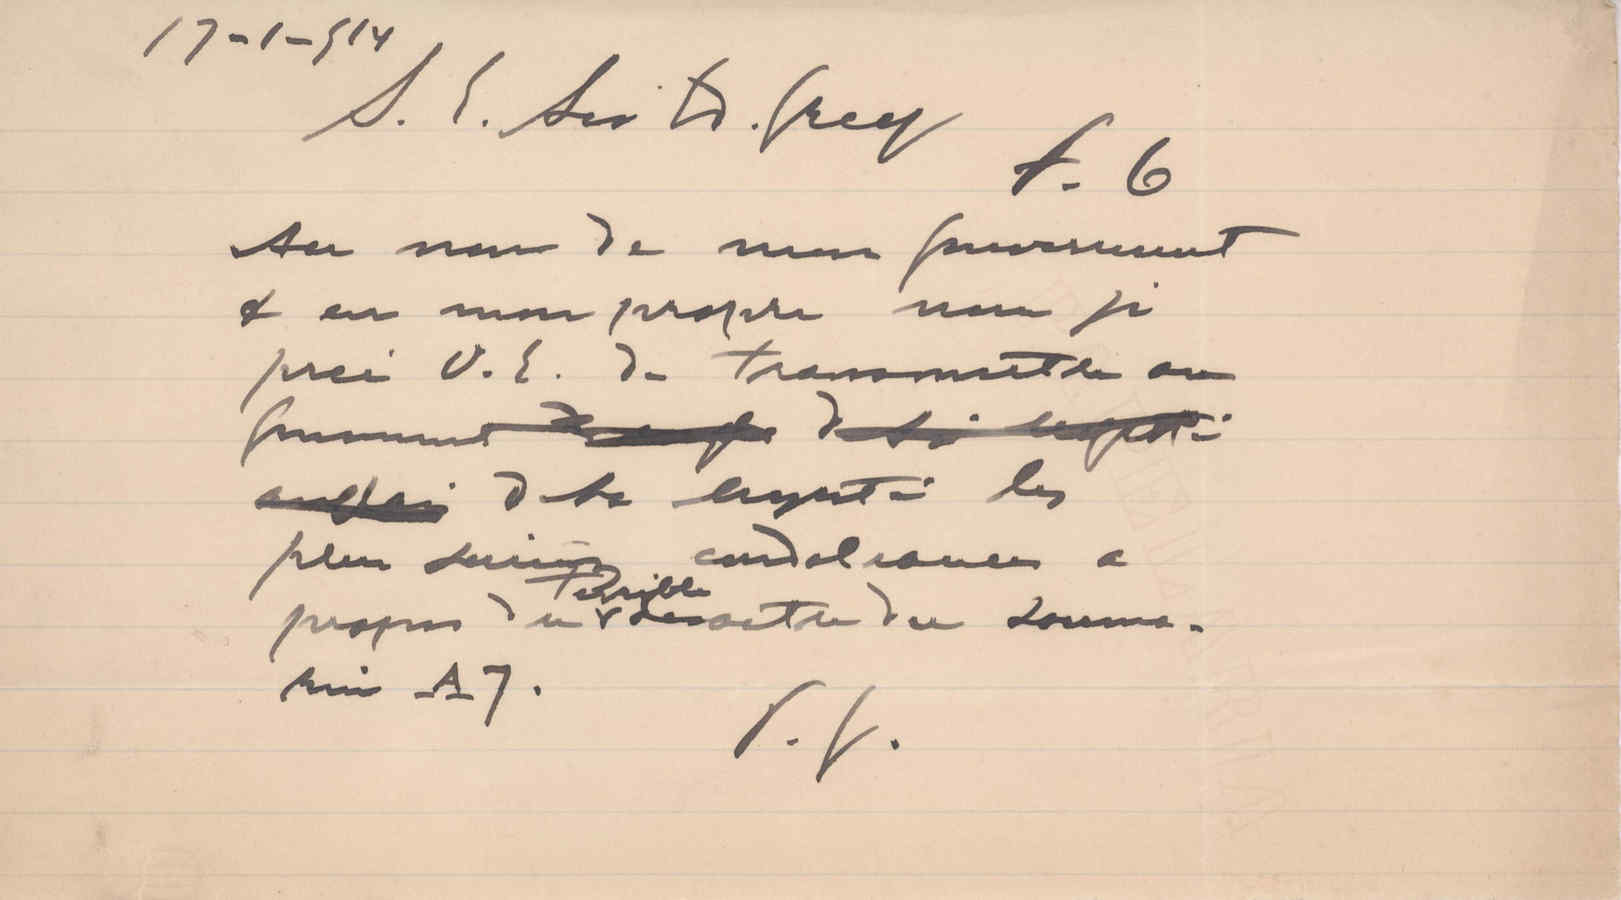 17-1-914
S. E. Sir Ed. Grey
f. 6
Au nom de mon gouvernement
& en mon propre nom je
prie V. E. de transmettre au
gouvernement de
anglais de Sa Majesté les
plus sincères condoleances a
propos du terrible desastre du souma-
rin A7.